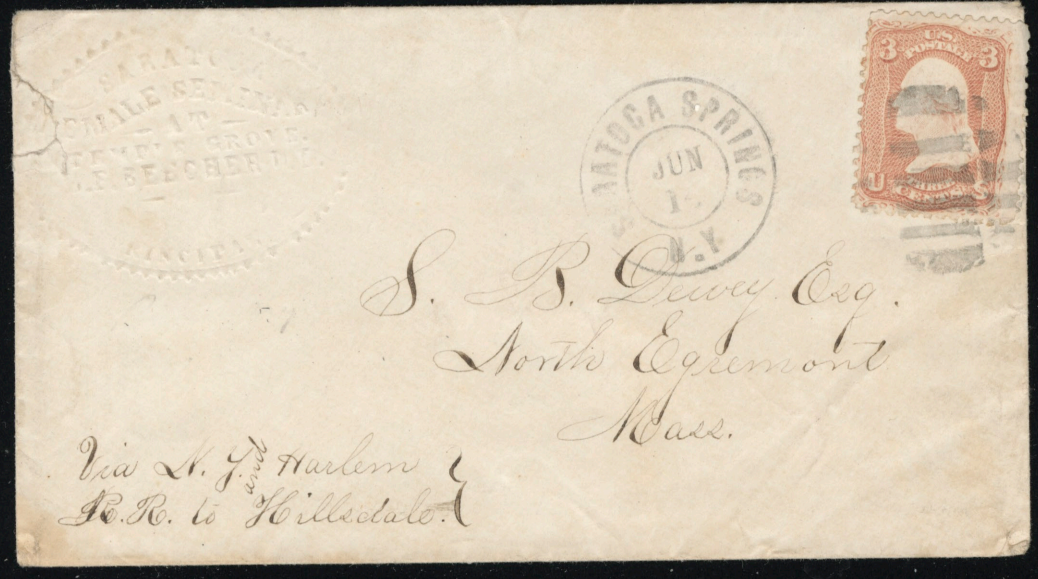 SARATO
EMALE SEMINAR
AT
TEMPLE GROVE.
L.F. BEECHER D.D.
RINCIPA
SARATOGA SPRINGS
JUN
N.Y.
3 U.S. 3
POSTAGE
U S
S. B. Dewey. Esq.
North Egremont
Mass.
Via N. Y. and Harlem
R.R. to Hillsdale.